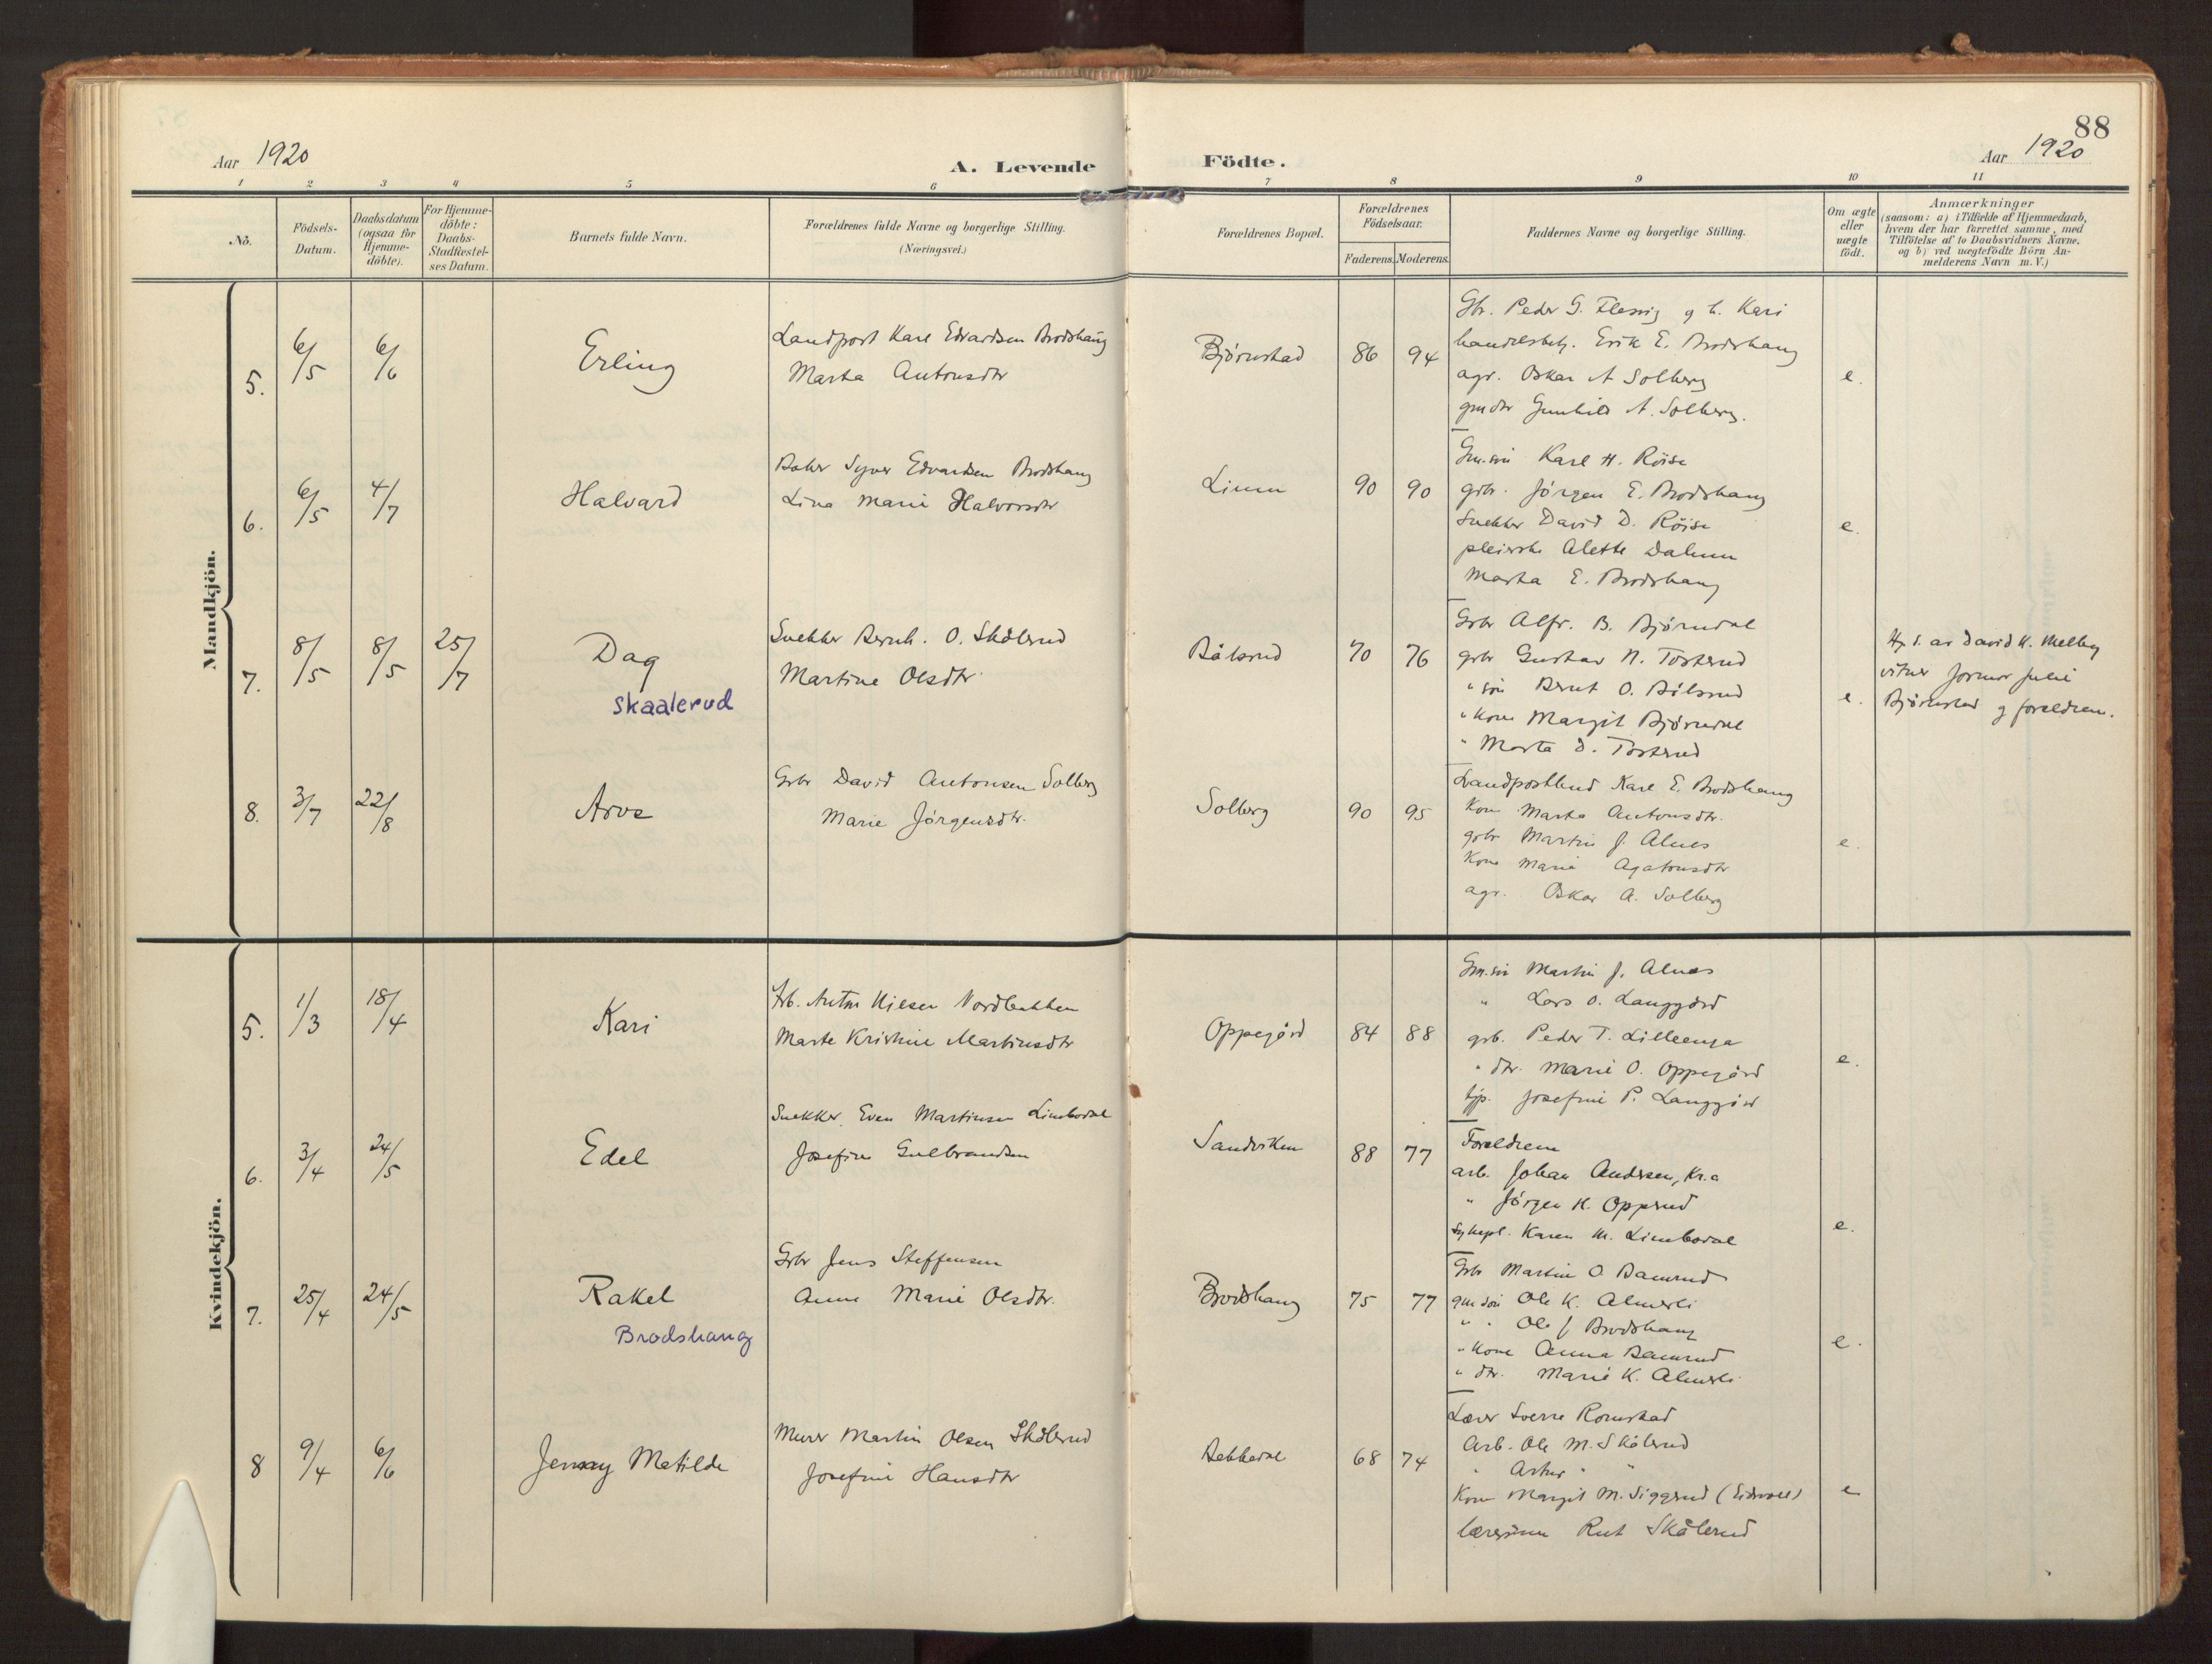 88
Aar 1920
A. Levende Födte.
Aar 1920
1 2 3 4 5 6 7 8 9 10 11
No.
Födsels-Datum.
Daabsdatum (ogsaa for Hjemme-döbte).
For Hjemme-döbte: Daabs-Stadfæstel-ses Datum.
Barnets fulde Navn.
Forældrenes fulde Navne og borgerlige Stilling.
(Næringsvei.)
Forældrenes Bopæl.
Forældrenes Födselsaar.
Faderens. Moderens.
Faddernes Navne og borgerlige Stilling.
Om ægte eller uægte födt.
Anmærkninger
(saasom: a) i Tilfælde af Hjemmedaab,
hvem der har forrettet samme, med
Tilföielse af to Daabsvidners Navne,
og b) ved uægtefödte Börn An-
melderens Navn m. V.)
Mandkjön.
5. 6/5 6/6 Erling
Landpost Karl Edvardsen Brodshaug
Marta Antonsdtr
Bjørnstad 86 94
Gbr. Peder G. og h. Kari
handelsbetj. Erik E. Brodshaug
agr. Oskar A Solberg
gmdtr Gunhild A. Solberg.
e.
6. 6/5 4/7 Halvard
Baker Syver Edvardsen Brodshaug
Lina Marie Halvorsdtr
Linna 90 90
Gm.søn Karl H. Røise
gbr. Jørgen E. Brodshaug
Snekker David D. Røise
pleierske Alette Dalum
Marta E. Brodshaug
e.
7. 8/5 8/5 25/7 Dag
Skaalerud
Snekker Bernh. O. Skålerud
Martine Olsdtr
Bålsrud 70 76
Gbr Alfr. B. Bjørndal
gbr Gustav N. Tosterud
" søn Bernt O. Bålsrud
" Kone Margit Bjørndal
" Marta D. Tosterud
e.
Hj d. av David K. Melby
vitner formor Julie
Bjørnstad og foreldrene.
8. 3/7 22/8 Arve
Gbr David Antonsen Solberg
Marie Jørgensdtr.
Solberg 90 95
Landpostbud Karl E. Brodshaug
Kone Marta Antonsdtr.
gbr Martin J. Alnes
Kone Marie Agatonsdtr
agr. Oskar A. Solberg
e.
Kvindekjön.
5. 1/3 18/4 Kari
Arb. Anton Nilsen Nordbakken
Marte Kristine Martinsdtr
Oppegård 84 88
Gm.søn Martin J. Alnæs
" Lars O. Langgård
grb. Peder T. Lilleenga
" dtr. Marie O. Oppegård
tjp. Josefine P. Langgård
e.
6. 3/4 24/5 Edel
Snekker Even Martinsen Limbodal
Josefine Gulbrandsen
Sandviken 88 77
Foreldrene
arb. Johan Andersen, Kr.a
" Jørgen H. Opperud
sykepl. Karen M. Limbodal
e.
7. 25/4 24/5 Rakel
Brodshaug
Gbr Jens Steffensen
Anne Marie Olsdtr.
Brodshaug 75 77
Gbr Martin O. Bamrud
gm søn Ole K. Almerli
" " Ole J Brodshaug
" Kone Anna Bamrud
" dtr. Marie K. Almerli
e.
8 9/4 6/6 Jenny Matilde
Murer Martin Olsen Skålerud
Josefine Hansdtr
Bekkedal 68 74
Lærer Sverre Romstad
Arb. Ole M. Skålerud
" Artur " "
Kone Margit M. Siggerud (Eidsvoll)
lærerinne Rut Skålerud
e